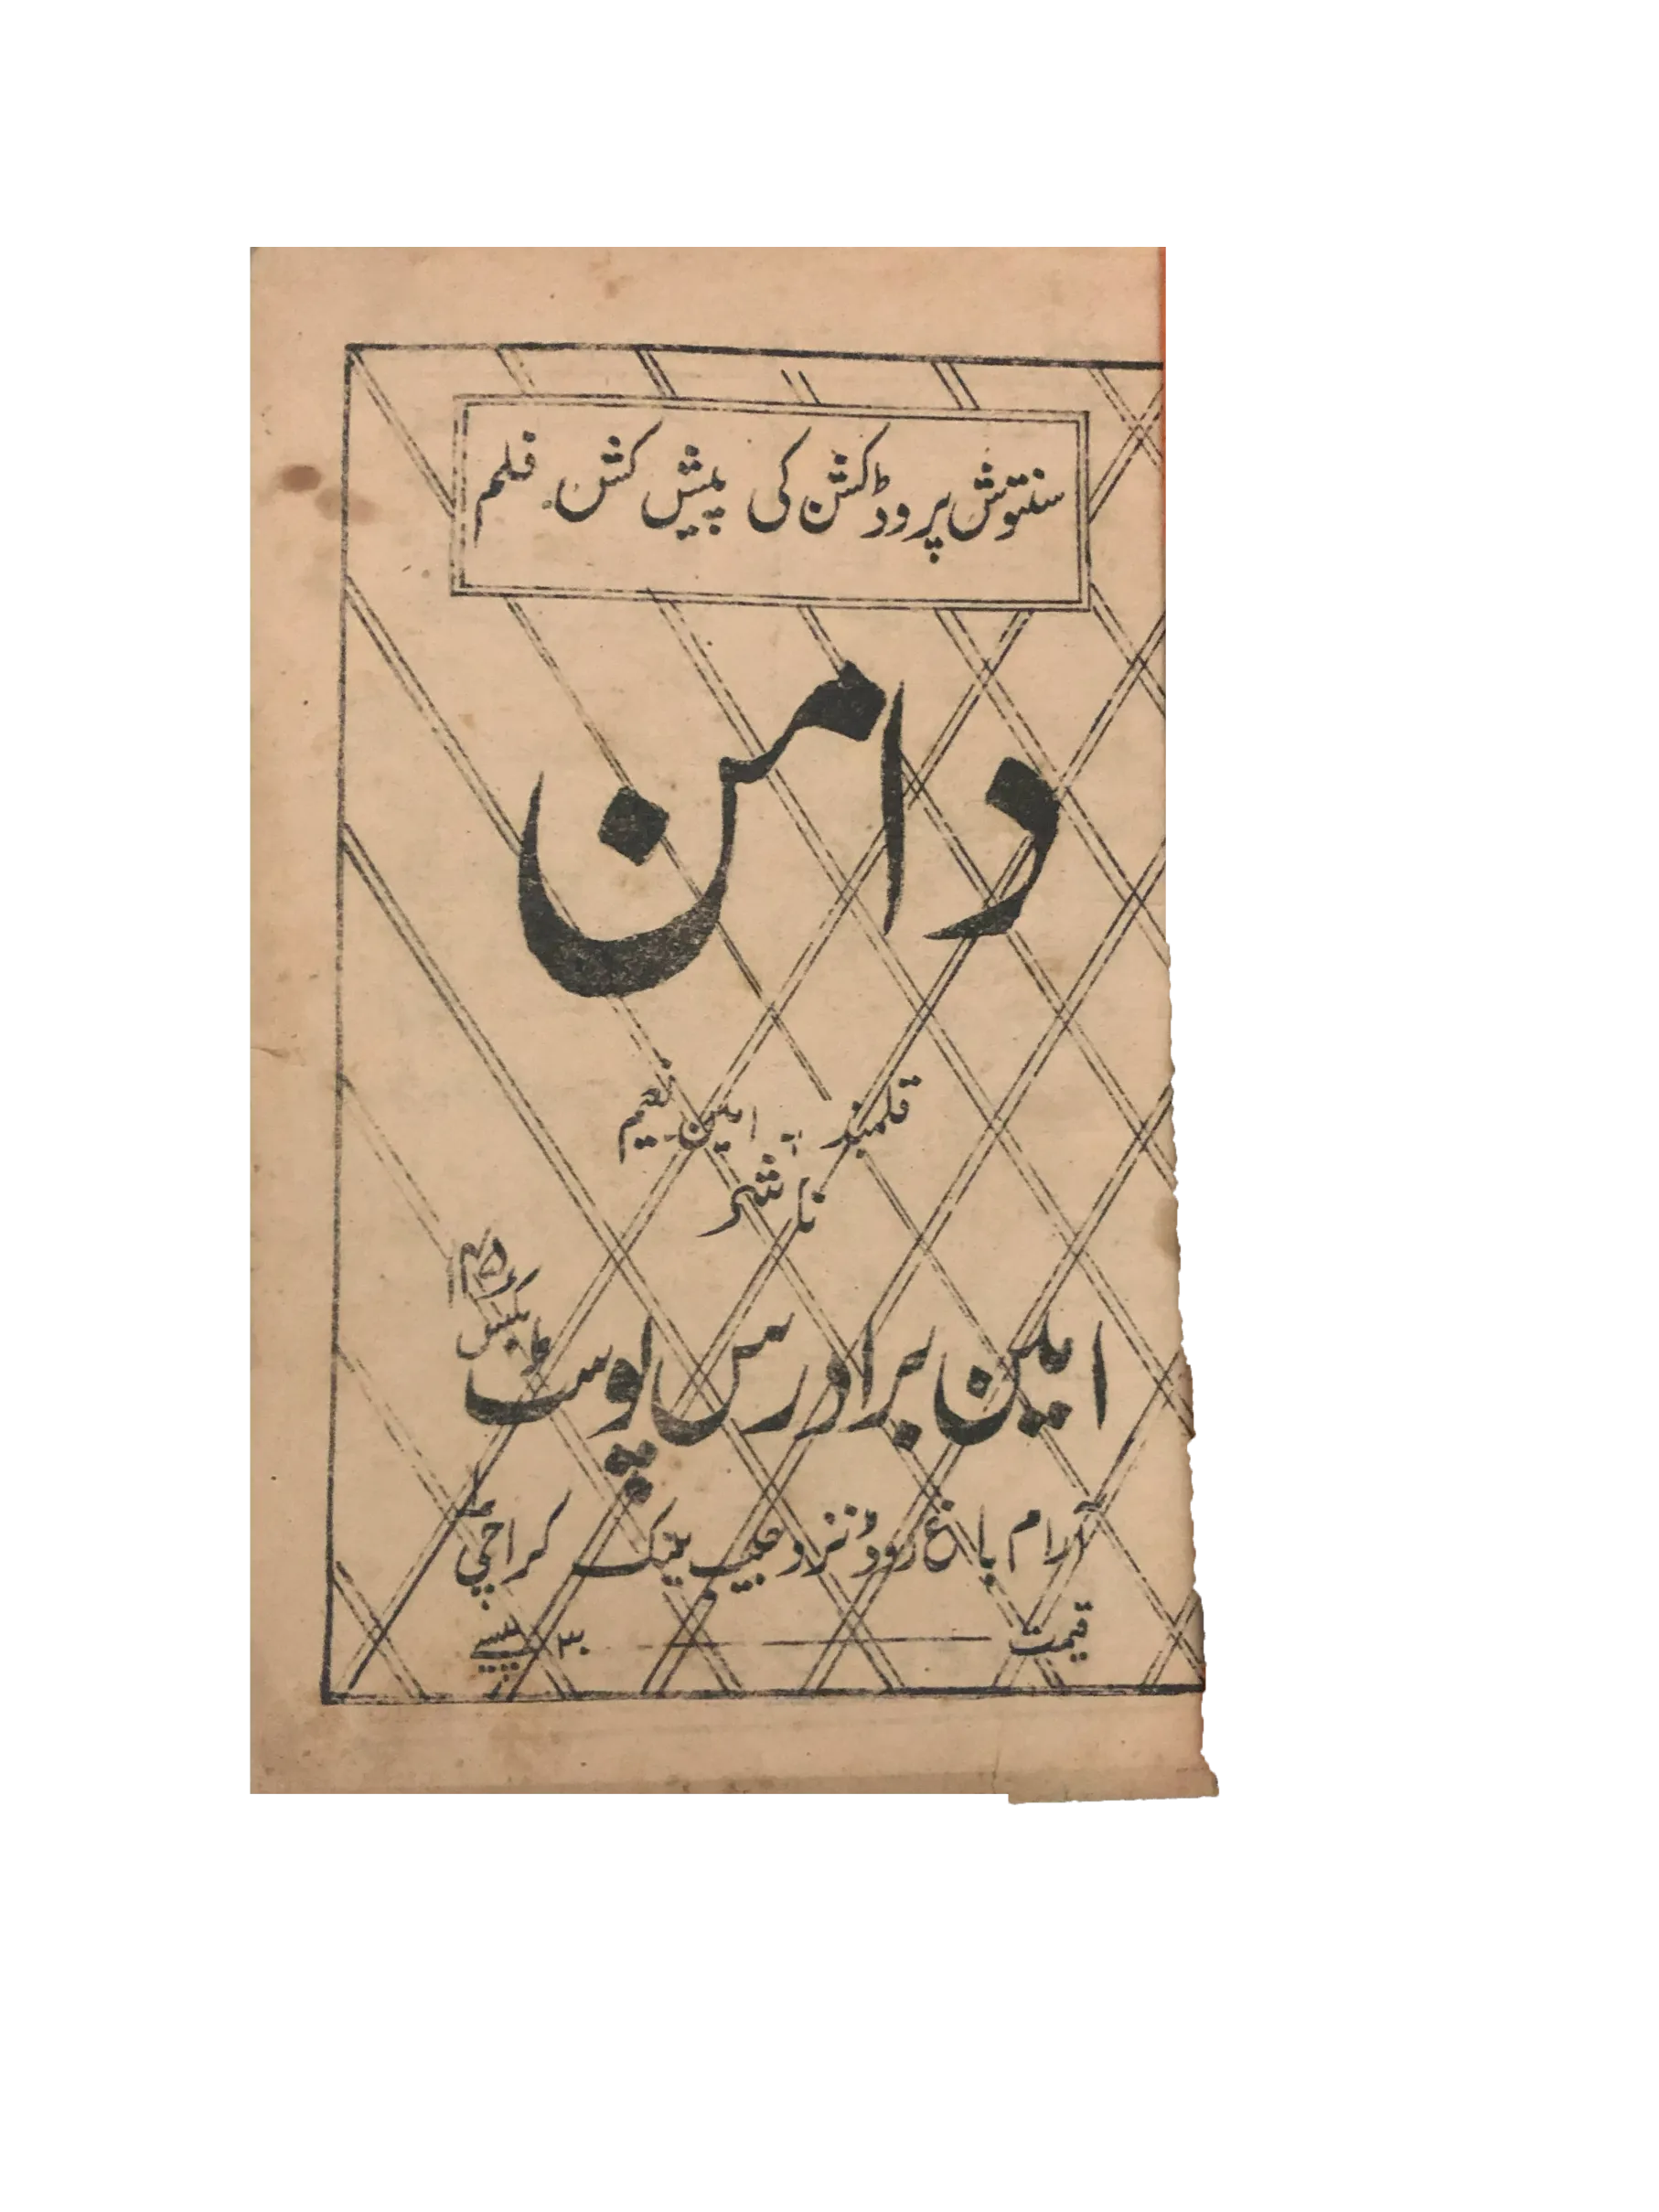 سنتوش پروڈکشن کی پیش کش۔ فلم
دامن
قلمبند :۔ امین نعیم
ناشر
امین برادرس پوسٹ بکس
آرام باغ روڈ نزد حبیب بینک کراچی
قیمت ۳۰ پیسے